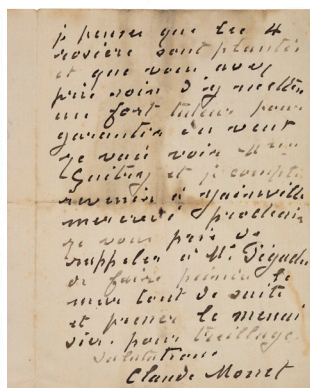 je pense que les 4
rosiers sont plantés
et que vous avez
pris soin d'y mettre
un fort tuteur pour
garantir du vent
je vais voir
Guitry et je compte
revenir à
mercredi prochain
je vous prie de
rappeler à Mr
de faire peindre le
mur tout de suite
et presser le menui
sier pour treillage.
Salutations
Claude Monet